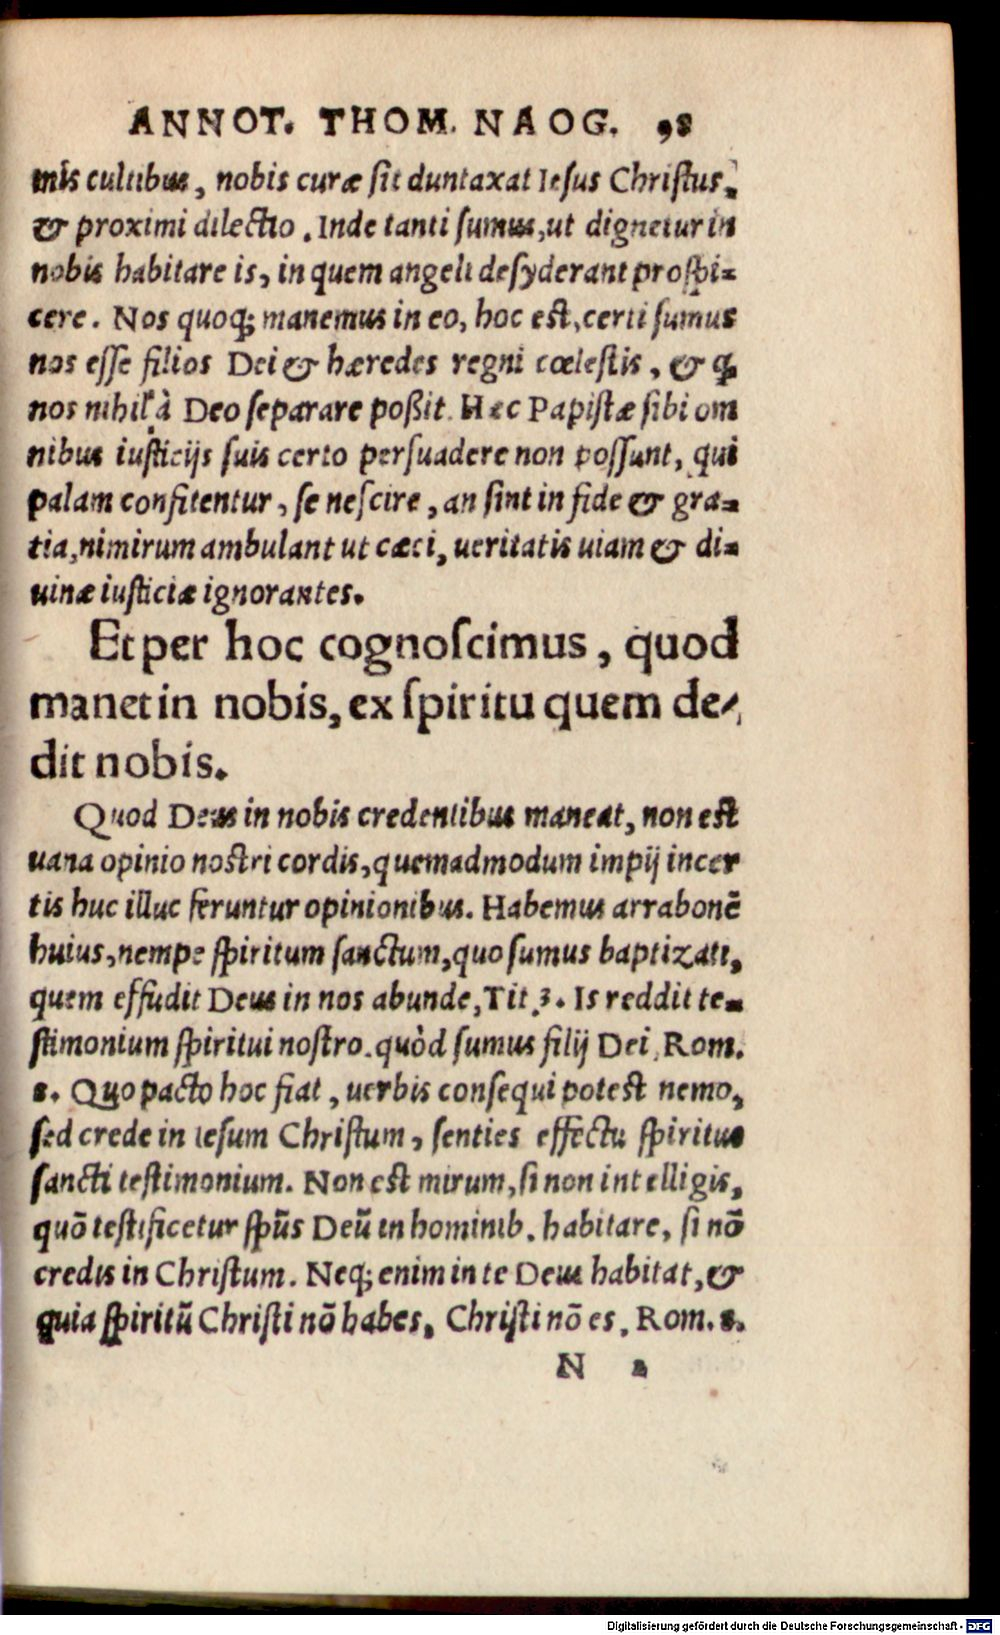 ANNOT. THOM. NAOG. 98
mis cultibus, nobis curæ sit duntaxat Iesus Christus,
& proximi dilectio. Inde tanti sumus, ut dignetur in
nobis habitare is, in quem angeli desyderant prospi-
cere. Nos quoq; manemus in eo, hoc est, certi sumus
nos esse filios Dei & hæredes regni cœlestis, & ꝙ
nos nihil à Deo separare poßit. Hæc Papistæ sibi om
nibus iusticijs suis certo persuadere non possunt, qui
palam confitentur, se nescire, an sint in fide & gra-
tia, nimirum ambulant ut cæci, ueritatis uiam & di-
uinæ iusticiæ ignorantes.
Et per hoc cognoscimus, quod
manet in nobis, ex spiritu quem de-
dit nobis.
Quod Deus in nobis credentibus maneat, non est
uana opinio nostri cordis, quemadmodum impij incer
tis huc illuc feruntur opinionibus. Habemus arrabonē
huius, nempe spiritum sanctum, quo sumus baptizati,
quem effudit Deus in nos abunde, Tit. 3. Is reddit te-
stimonium spiritui nostro. quòd sumus filij Dei, Rom.
8. Quo pacto hoc fiat, uerbis consequi potest nemo,
sed crede in Iesum Christum, senties effectu spiritus
sancti testimonium. Non est mirum, si non intelligis,
quō testificetur spūs Deū in hominib. habitare, si nō
credis in Christum. Neq; enim in te Deus habitat, &
quia spiritū Christi nō habes, Christi nō es. Rom. 8.
N 2
Digitalisierung gefördert durch die Deutsche Forschungsgemeinschaft - DFG